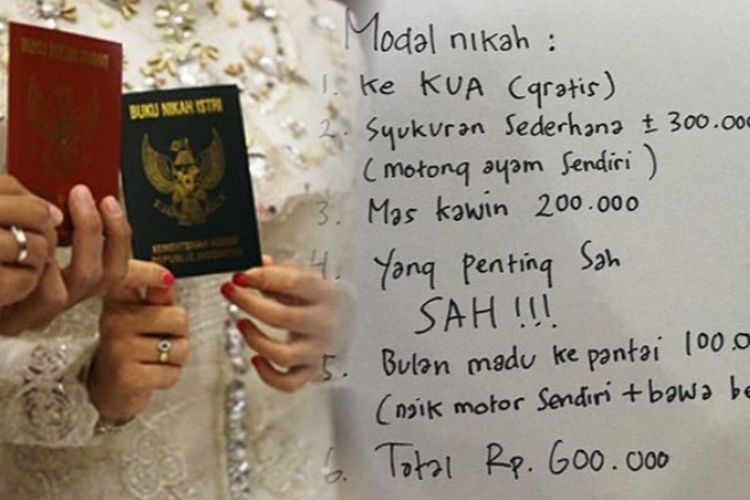 BUKU NIKAH SUAMI
BUKU NIKAH ISTRI
KEMENTERIAN AGAMA
REPUBLIK INDONESIA
Modal nikah :
1. Ke KUA (gratis)
2. Syukuran Sederhana ± 300.000
(motong ayam sendiri)
3. Mas kawin 200.000
4. Yang penting Sah
SAH !!!
5. Bulan madu ke pantai 100.0
(naik motor sendiri + bawa be
6. Total Rp. 600.000